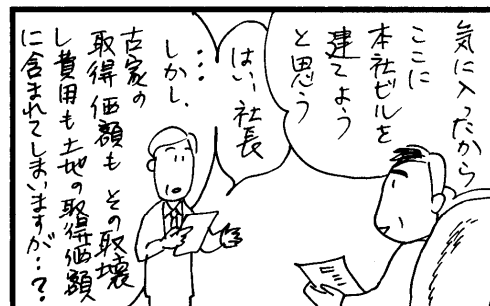 気に入ったから
ここに
本社ビルを
建てよう
と思う
はい、社長
…
しかし、
古家の
取得価額も その取壊
し費用も土地の取得価額
に含まれてしまいますが…?